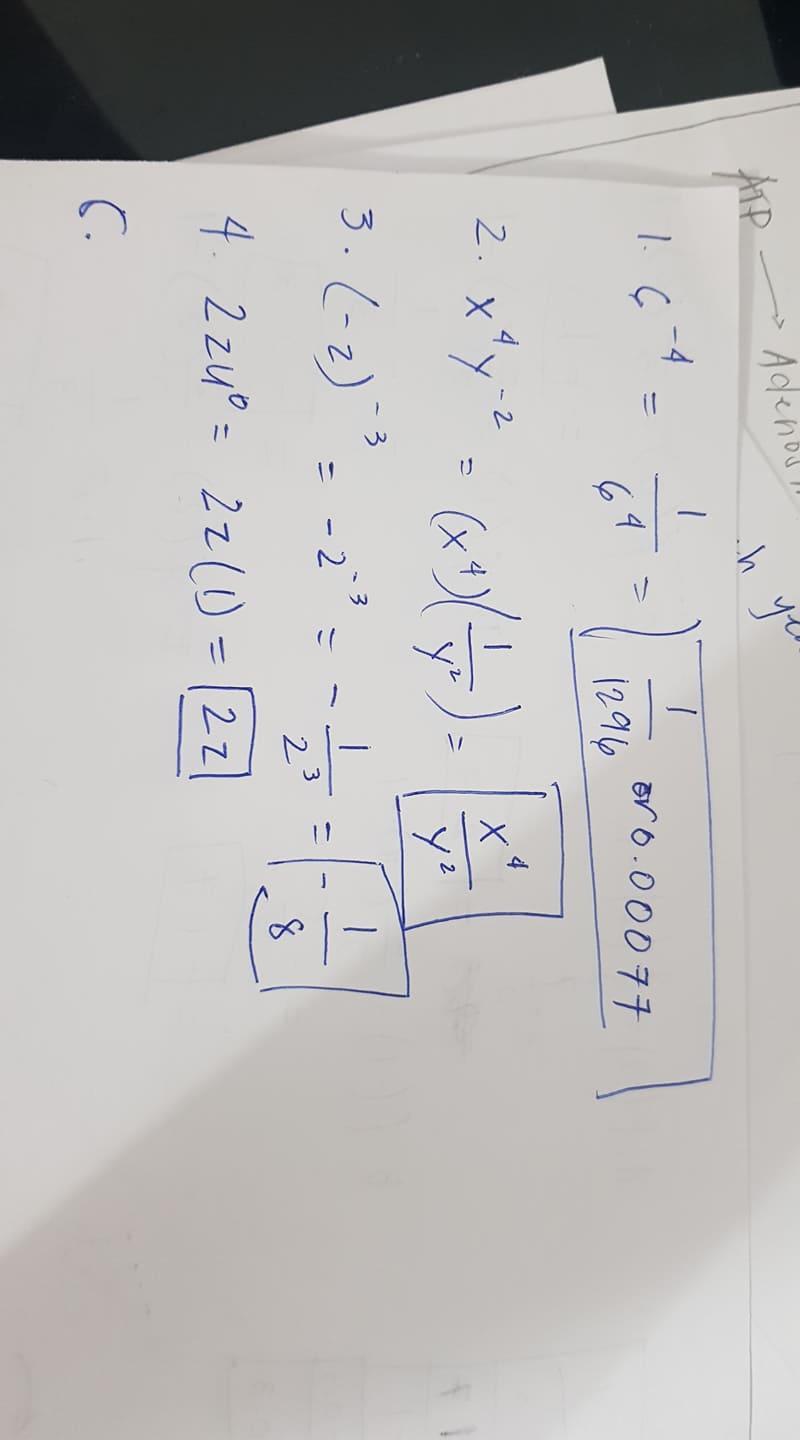 ATP → Adenos
h ye
1. 6⁻⁴ = 1/6⁴ = 1/1296 or 0.00077
2. x⁴y⁻² = (x⁴)(1/y²) = x⁴/y²
3. (-2)⁻³ = -2⁻³ = -1/2³ = -1/8
4. 2z4⁰ = 2z(1) = 2z
C.